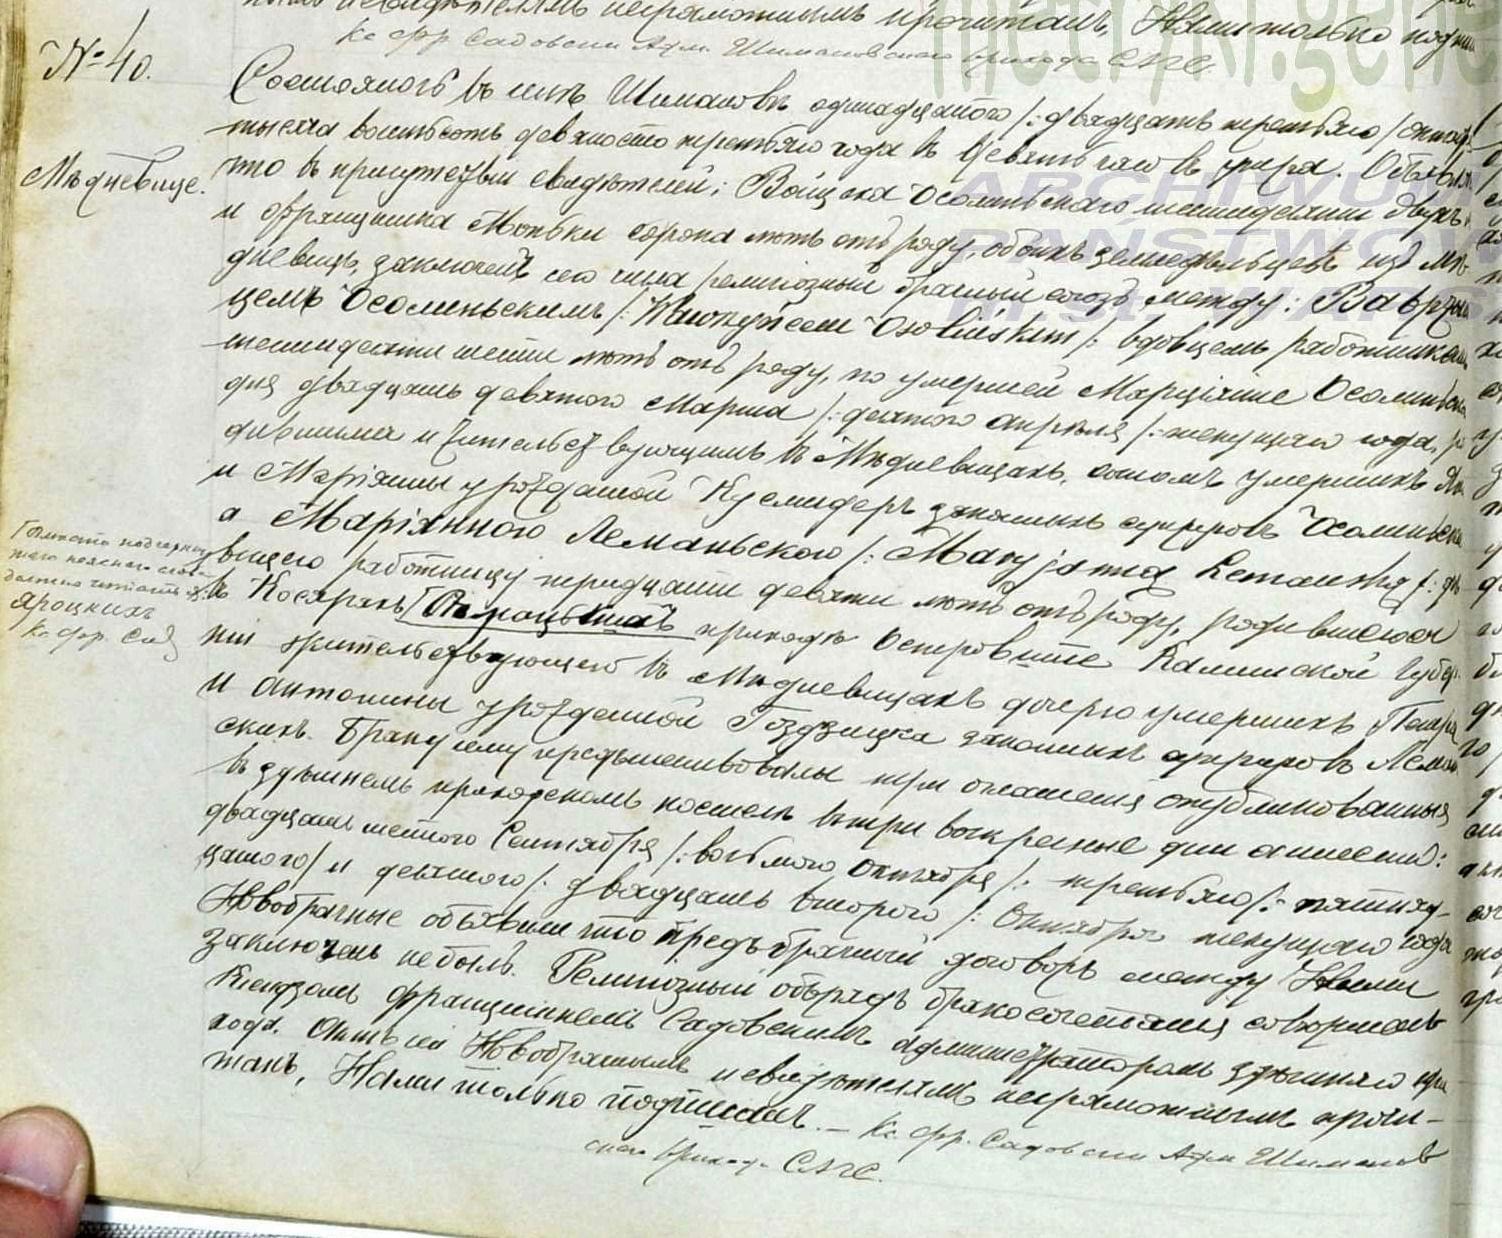 неграмотнымъ прочитанъ, Нами только подписанъ
Кс. Фр. Садовски Адм. Шимановскаго прихода СПГС.
metryki.gene
№ 40.
Мѣдневице.
Состоялось въ селѣ Шимановѣ одинадцатаго /: двадцать третьяго / октяб.
тысяча восемьсотъ девяносто третьяго года въ девять часовъ утра. Объявл.
что въ присутствіи свидѣтелей: Войцеха Осолиньскаго шестидесяти двухъ
и Францишка Мотыки сорока лѣтъ отъ роду, обоихъ земледѣльцевъ изъ Мѣ
дневицъ, заключенъ сего числа религіозный брачный союзъ между: Вавржин
цемъ Осолиньскимъ /: Wawrzyńcem Osolińskim /: вдовцемъ работникомъ
шестидесяти шести лѣтъ отъ роду, по умершей Марціяннѣ Осолиньск
дня двадцать девятого Марта /: десятого апрѣля /: текущаго года, ро
дившимся и жительствующимъ въ Мѣдневицахъ, сыномъ умершихъ Яна
и Маріянны урожденной Кусмидеръ законныхъ супруговъ Осолиньски
а Маріянною Леманьскою /: Maryjanną Lemańską /: дѣ
вицею работницу тридцати девяти лѣтъ отъ роду, родившеюся
въ Косаряхъ приходѣ Островите Калишской Губер
ніи жительствующею въ Мѣдневицахъ дочерю умершихъ Петра
и Антонины урожденной Гоздзицка законныхъ супруговъ Леман
скихъ. Браку сему предшествовали три оглашенія опубликованныя
въ здѣшнемъ приходскомъ костелѣ въ три воскресные дни а именно:
двадцать шестого Сентября /: восьмого Октября /: третьяго /: пятнад-
цатого / и десятого /: двадцать второго /: Октября текущаго года
Новобрачные объявили что предъбрачный договоръ между Ними
заключенъ небылъ. Религіозный обрядъ бракосочетанія совершенъ
Ксендзомъ Францишкомъ Садовскимъ администраторомъ здѣшняго при
хода. Актъ сей Новобрачнымъ и свидѣтелямъ неграмотнымъ прочи-
танъ, Нами только подписанъ. — Кс. Фр. Садовски Адм. Шиманов
скаго прихода СПГС.
вмѣсто подчеркну
таго неяснаго слова
должно читаться
Яроцкихъ
Кс. Фр. Сад
ARCHIWUM
PAŃSTWOW
WARS